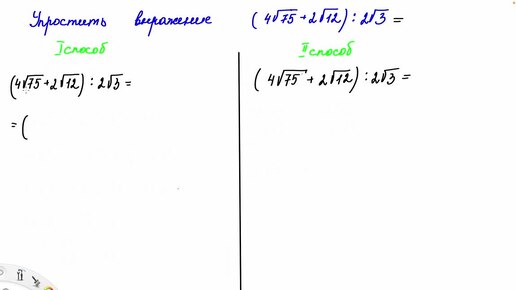 Упростить выражение (4√75 + 2√12) : 2√3 =
I способ
(4√75 + 2√12) : 2√3 =
= (
II способ
(4√75 + 2√12) : 2√3 =